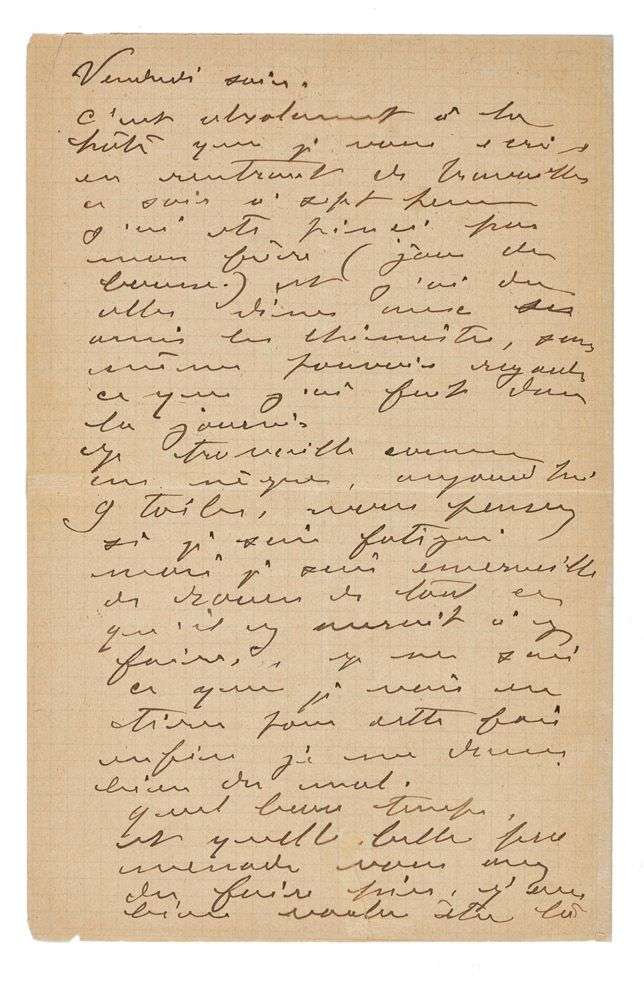 Vendredi soir.
C'est absolument à la
hâte que je vous écris
en rentrant de travailler
ce soir à sept heures
j'ai été pincé par
mon frère (jour de
bourse.) et j'ai du
aller diner avec ses
amis les chimistes, sans
même pouvoir regarder
ce que j'ai fait dans
la journée.
Je travaille comme
un nègre, aujourd'hui
9 toiles, vous pensez
si je suis fatigué
mais je suis émerveillé
de Rouen de tout ce
qu'il y aurait à y
faire, je ne sais
ce que je vais en
tirer pour cette fois
enfin je me donne
bien du mal.
quel beau temps,
et quelle belle pro
menade vous avez
du faire hier, j'aurais
bien voulu être là